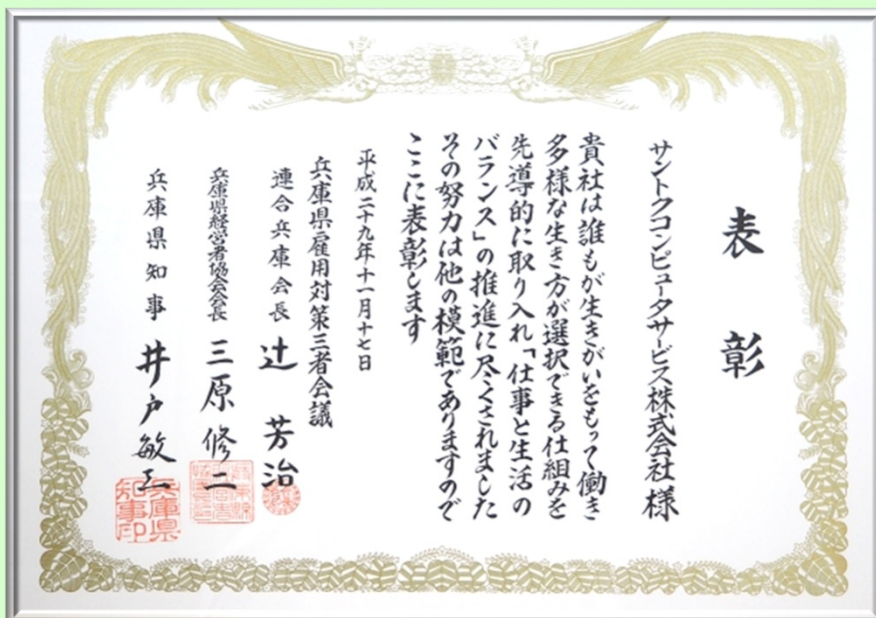 表彰
サントクコンピュータサービス株式会社様
貴社は誰もが生きがいをもって働き
多様な生き方が選択できる仕組みを
先導的に取り入れ「仕事と生活の
バランス」の推進に尽くされました
その努力は他の模範でありますので
ここに表彰します
平成二十九年十一月十七日
兵庫県雇用対策三者会議
連合兵庫会長 辻 芳治
兵庫県経営者協会会長 三原修二
兵庫県知事 井戸敏三
兵庫県知事印